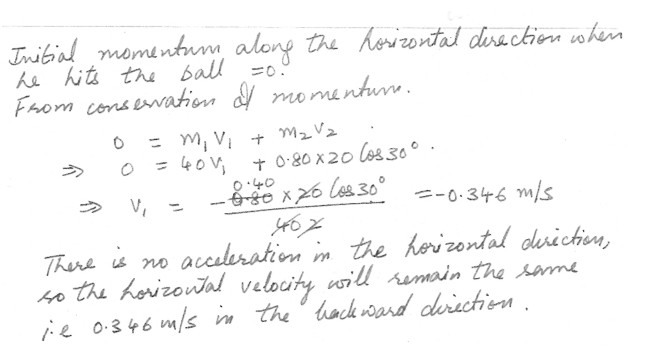 Initial momentum along the horizontal direction when
he hits the ball =0.
From conservation of momentum.
0 = m₁V₁ + m₂V₂
⇒ 0 = 40V₁ + 0.80×20 Cos30°.
⇒ V₁ = -0.80 0.40 × 20 Cos30° / 40 2 = -0.346 m/s
There is no acceleration in the horizontal direction,
so the horizontal velocity will remain the same
i.e 0.346 m/s in the backward direction.